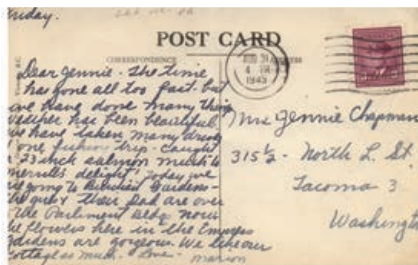 Friday.
POST CARD
CORRESPONDENCE
Dear Jennie - The time
has gone all too fast. but
we have done many things
Weather has been beautiful.
we have taken many drives
one fishing trip. Caught
a 23 inch salmon much to
Merrill's delight! Today we
are going to Butchart Gardens -
the guys & their Dad are over
the Parliment Bldg. now
The flowers here in the Empress
Gardens are gorgeous. We like our
Cottage so much. Love - marion
AUG 31
4 PM
1943
Mrs Jennie Chapman
315½ - North L. St.
Tacoma 3
Washington